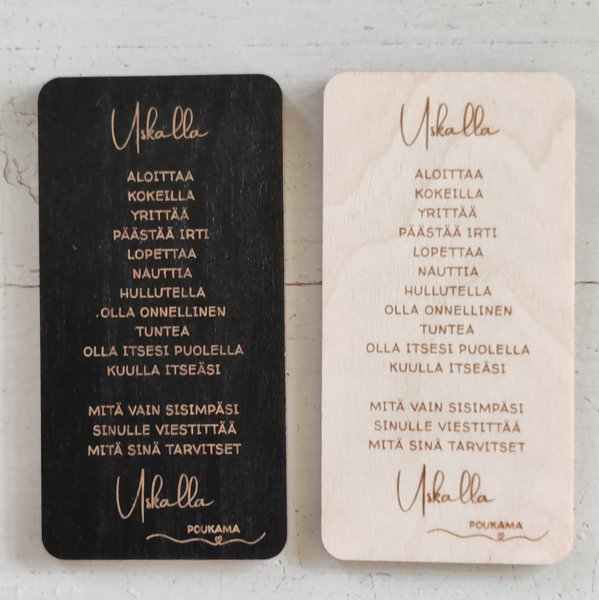 Uskalla
ALOITTAA
KOKEILLA
YRITTÄÄ
PÄÄSTÄÄ IRTI
LOPETTAA
NAUTTIA
HULLUTELLA
.OLLA ONNELLINEN
TUNTEA
OLLA ITSESI PUOLELLA
KUULLA ITSEÄSI
MITÄ VAIN SISIMPÄSI
SINULLE VIESTITTÄÄ
MITÄ SINÄ TARVITSET
Uskalla
POUKAMA
Uskalla
ALOITTAA
KOKEILLA
YRITTÄÄ
PÄÄSTÄÄ IRTI
LOPETTAA
NAUTTIA
HULLUTELLA
OLLA ONNELLINEN
TUNTEA
OLLA ITSESI PUOLELLA
KUULLA ITSEÄSI
MITÄ VAIN SISIMPÄSI
SINULLE VIESTITTÄÄ
MITÄ SINÄ TARVITSET
Uskalla
POUKAMA